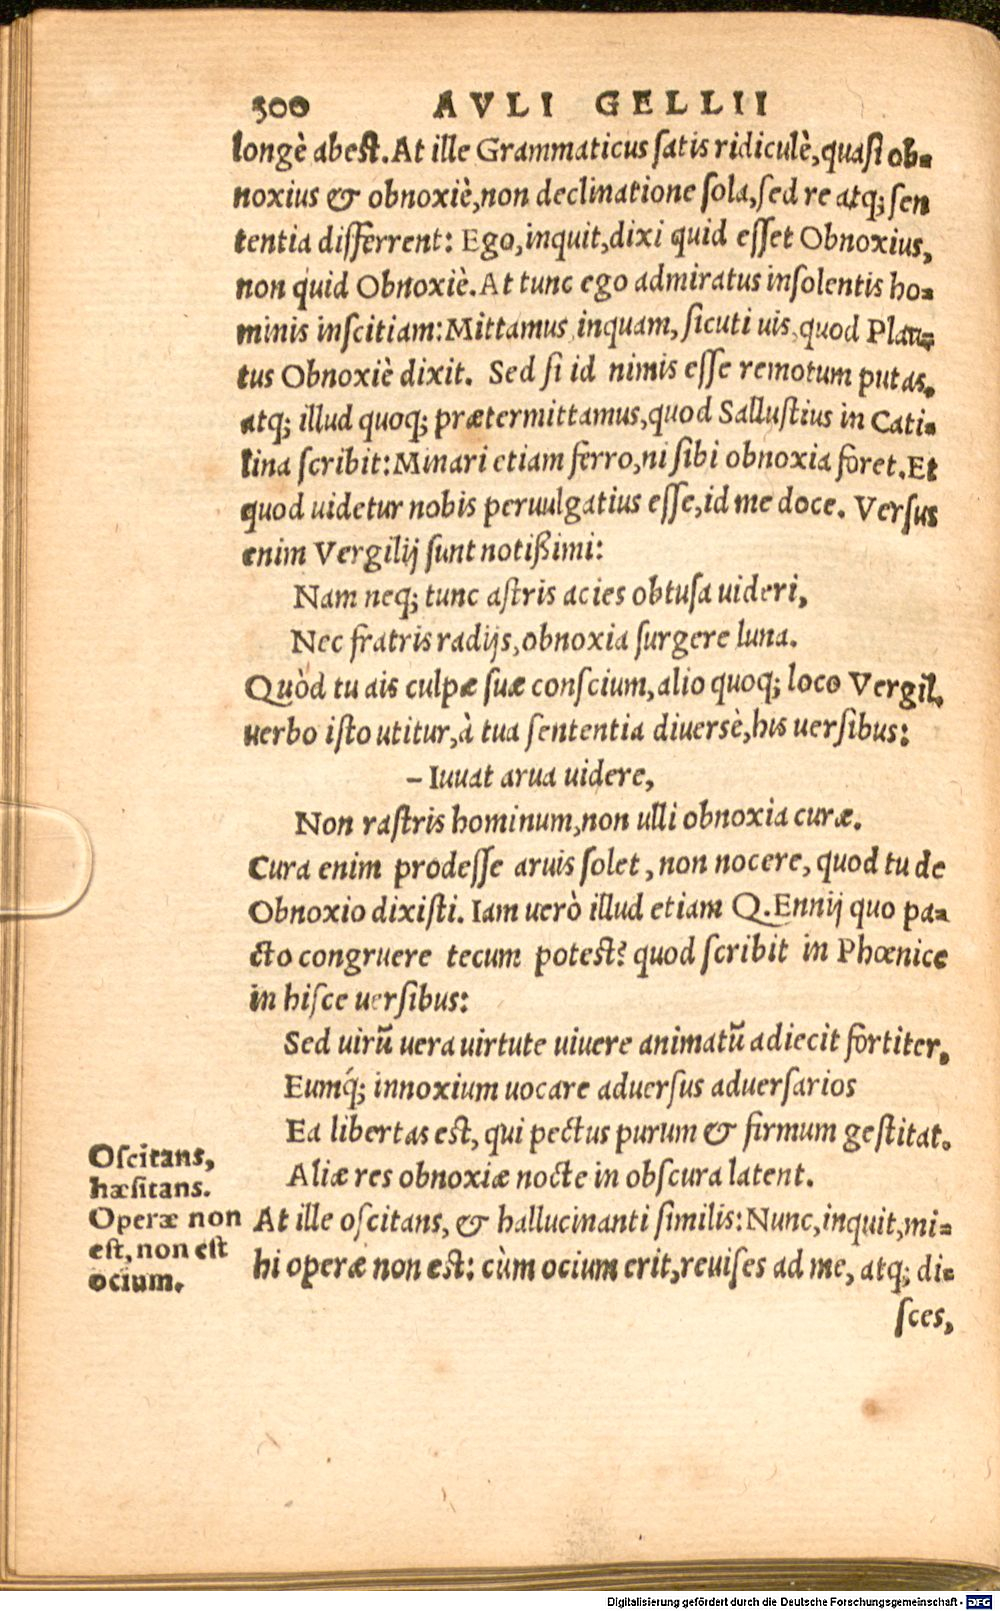 300 AVLI GELLII
longè abest. At ille Grammaticus satis ridiculè, quasi ob-
noxius & obnoxiè, non declinatione sola, sed re atq; sen
tentia differrent: Ego, inquit, dixi quid esset Obnoxius,
non quid Obnoxiè. At tunc ego admiratus insolentis ho-
minis inscitiam: Mittamus, inquam, sicuti uis, quod Plau-
tus Obnoxiè dixit. Sed si id nimis esse remotum putas,
atq; illud quoq; prætermittamus, quod Sallustius in Cati-
lina scribit: Minari etiam ferro, ni sibi obnoxia foret. Et
quod uidetur nobis peruulgatius esse, id me doce. Versus
enim Vergilij sunt notißimi:
Nam neq; tunc astris acies obtusa uideri,
Nec fratris radijs, obnoxia surgere luna.
Quòd tu ais culpæ suæ conscium, alio quoq; loco Vergil.
uerbo isto utitur, à tua sententia diuersè, his uersibus:
– Iuuat arua uidere,
Non rastris hominum, non ulli obnoxia curæ.
Cura enim prodesse aruis solet, non nocere, quod tu de
Obnoxio dixisti. Iam uerò illud etiam Q. Ennij quo pa-
cto congruere tecum potest? quod scribit in Phœnice
in hisce uersibus:
Sed uirũ uera uirtute uiuere animatũ adiecit fortiter,
Eumq́; innoxium uocare aduersus aduersarios
Ea libertas est, qui pectus purum & firmum gestitat.
Aliæ res obnoxiæ nocte in obscura latent.
At ille oscitans, & hallucinanti similis: Nunc, inquit, mi-
hi operæ non est: cùm ocium erit, reuises ad me, atq; di-
sces,
Oscitans,
hæsitans.
Operæ non
est, non est
ocium.
Digitalisierung gefördert durch die Deutsche Forschungsgemeinschaft - DFG